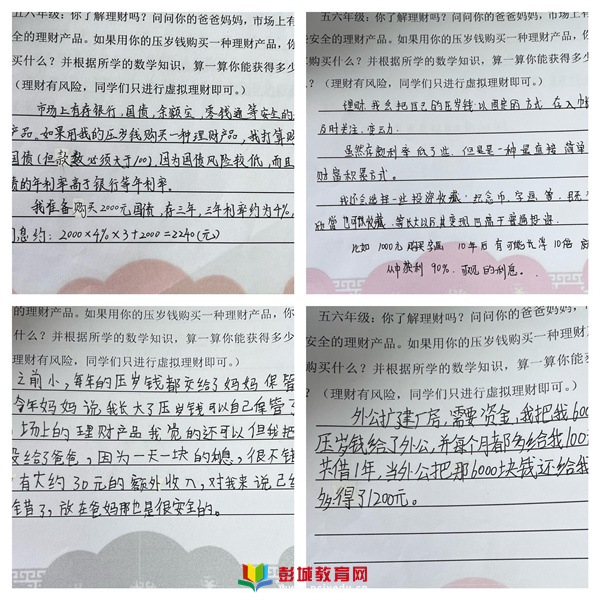 五六年级：你了解理财吗？问问你的爸爸妈妈，市场上有
全的理财产品。如果用你的压岁钱购买一种理财产品，你
什么？并根据所学的数学知识，算一算你能获得多少
（理财有风险，同学们只进行虚拟理财即可。）
市场上有存银行，国债，余额宝，零钱通等安全的
产品。如果用我的压岁钱购买一种理财产品，我打算购
国债（但款数必须大于100），因为国债风险较低，而且
债的年利率高于银行等年利率。
我准备购买2000元国债，存三年，三年利率约为4%，
息约：2000×4%×3+2000=2240(元)
五六年级：你了解理财吗？问问你的爸爸妈妈，市场上有
安全的理财产品。如果用你的压岁钱购买一种理财产品，你
什么？并根据所学的数学知识，算一算你能获得多
（理财有风险，同学们只进行虚拟理财即可。）
理财，我会把自己的压岁钱以固定的方式，在
及时关注，变动
虽然存款利率低了些，但是是一种最直接简单
财富积累方式。
我还会选择一些投资收藏，纪念币，字画等，
欣赏也可收藏，等长大以后其变现
比如1000元购买字画 10年后有可能长浮10倍
从中获利 90% 可观的利息。
的理财产品。如果用你的压岁钱购买一种理财产品，你
什么？并根据所学的数学知识，算一算你能获得多少
财有风险，同学们只进行虚拟理财即可。）
之前小，每年的压岁钱都交给了妈妈保管
今年妈妈说我长大了压岁钱可以自己保管了
场上的理财产品我觉的还可以但我把
给了爸爸，因为一天一块的息，很不错
有大约30元的额外收入，对我来说已经
错了，放在爸妈那也是很安全的。
五六年级：你了解理财吗？问问你的爸爸妈妈，
安全的理财产品。如果用你的压岁钱购买一种理财
购买什么？并根据所学的数学知识，算一算你能
？（理财有风险，同学们只进行虚拟理财即可。）
外公扩建厂房，需要资金，我把我600
压岁钱给了外公，并每个月都多给我100
共借1年，当外公把那6000块钱还给我
多得了1200元。
彭城教育网